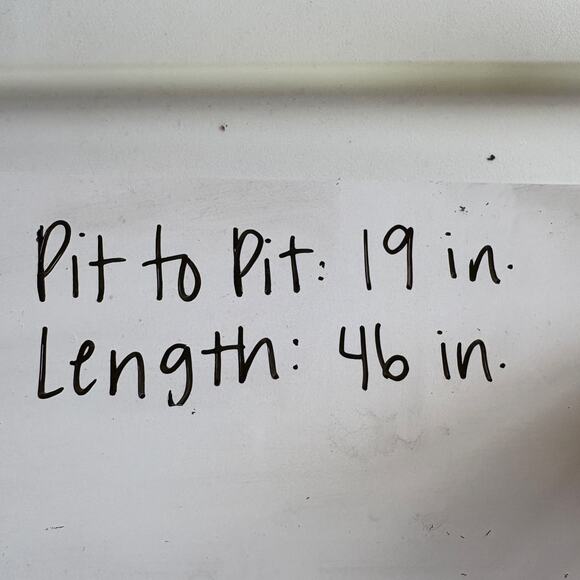 Pit to Pit: 19 in.
Length: 46 in.